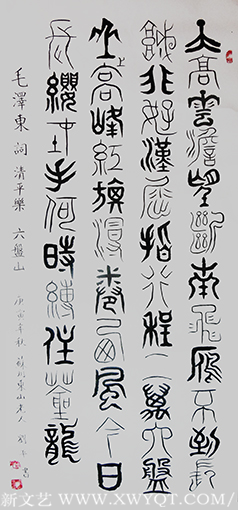 天高雲澹望斷南飛雁不到長
城非好漢屈指行程二萬六盤
山上高峰紅旗漫卷西風今日
長纓在手何時縛住蒼龍
毛澤東詞 清平樂 六盤山
庚寅年秋 蘇州東山老人 劉 書
新文艺 / WWW.XWYQT.COM/